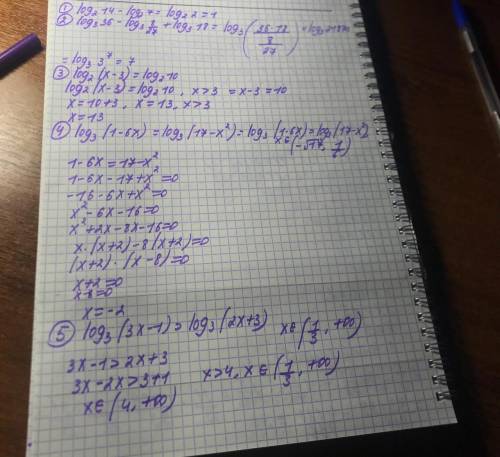 ① log₂14 - log₂7 = log₂2 = 1
② log₃36 - log₃ 8/27 + log₃18 = log₃ (36·18 / 8/27) = log₃2187=
= log₃3⁷ = 7
③ log₂(x-3) = log₂10
log₂(x-3) = log₂10, x>3 = x-3=10
x=10+3, x=13, x>3
x=13
④ log₃(1-6x) = log₃(17-x²) = log₃(1-6x) = log₃(17-x²),
x∈(-√17, 1/6)
1-6x=17-x²
1-6x-17+x²=0
-16-6x+x²=0
x²-6x-16=0
x²+2x-8x-16=0
x·(x+2)-8(x+2)=0
(x+2)·(x-8)=0
x+2=0
x-8=0
x=-2
⑤ log₃(3x-1)>log₃(2x+3) x∈(1/3, +∞)
3x-1>2x+3
3x-2x>3+1 x>4, x∈(1/3, +∞)
x∈(4, +∞)